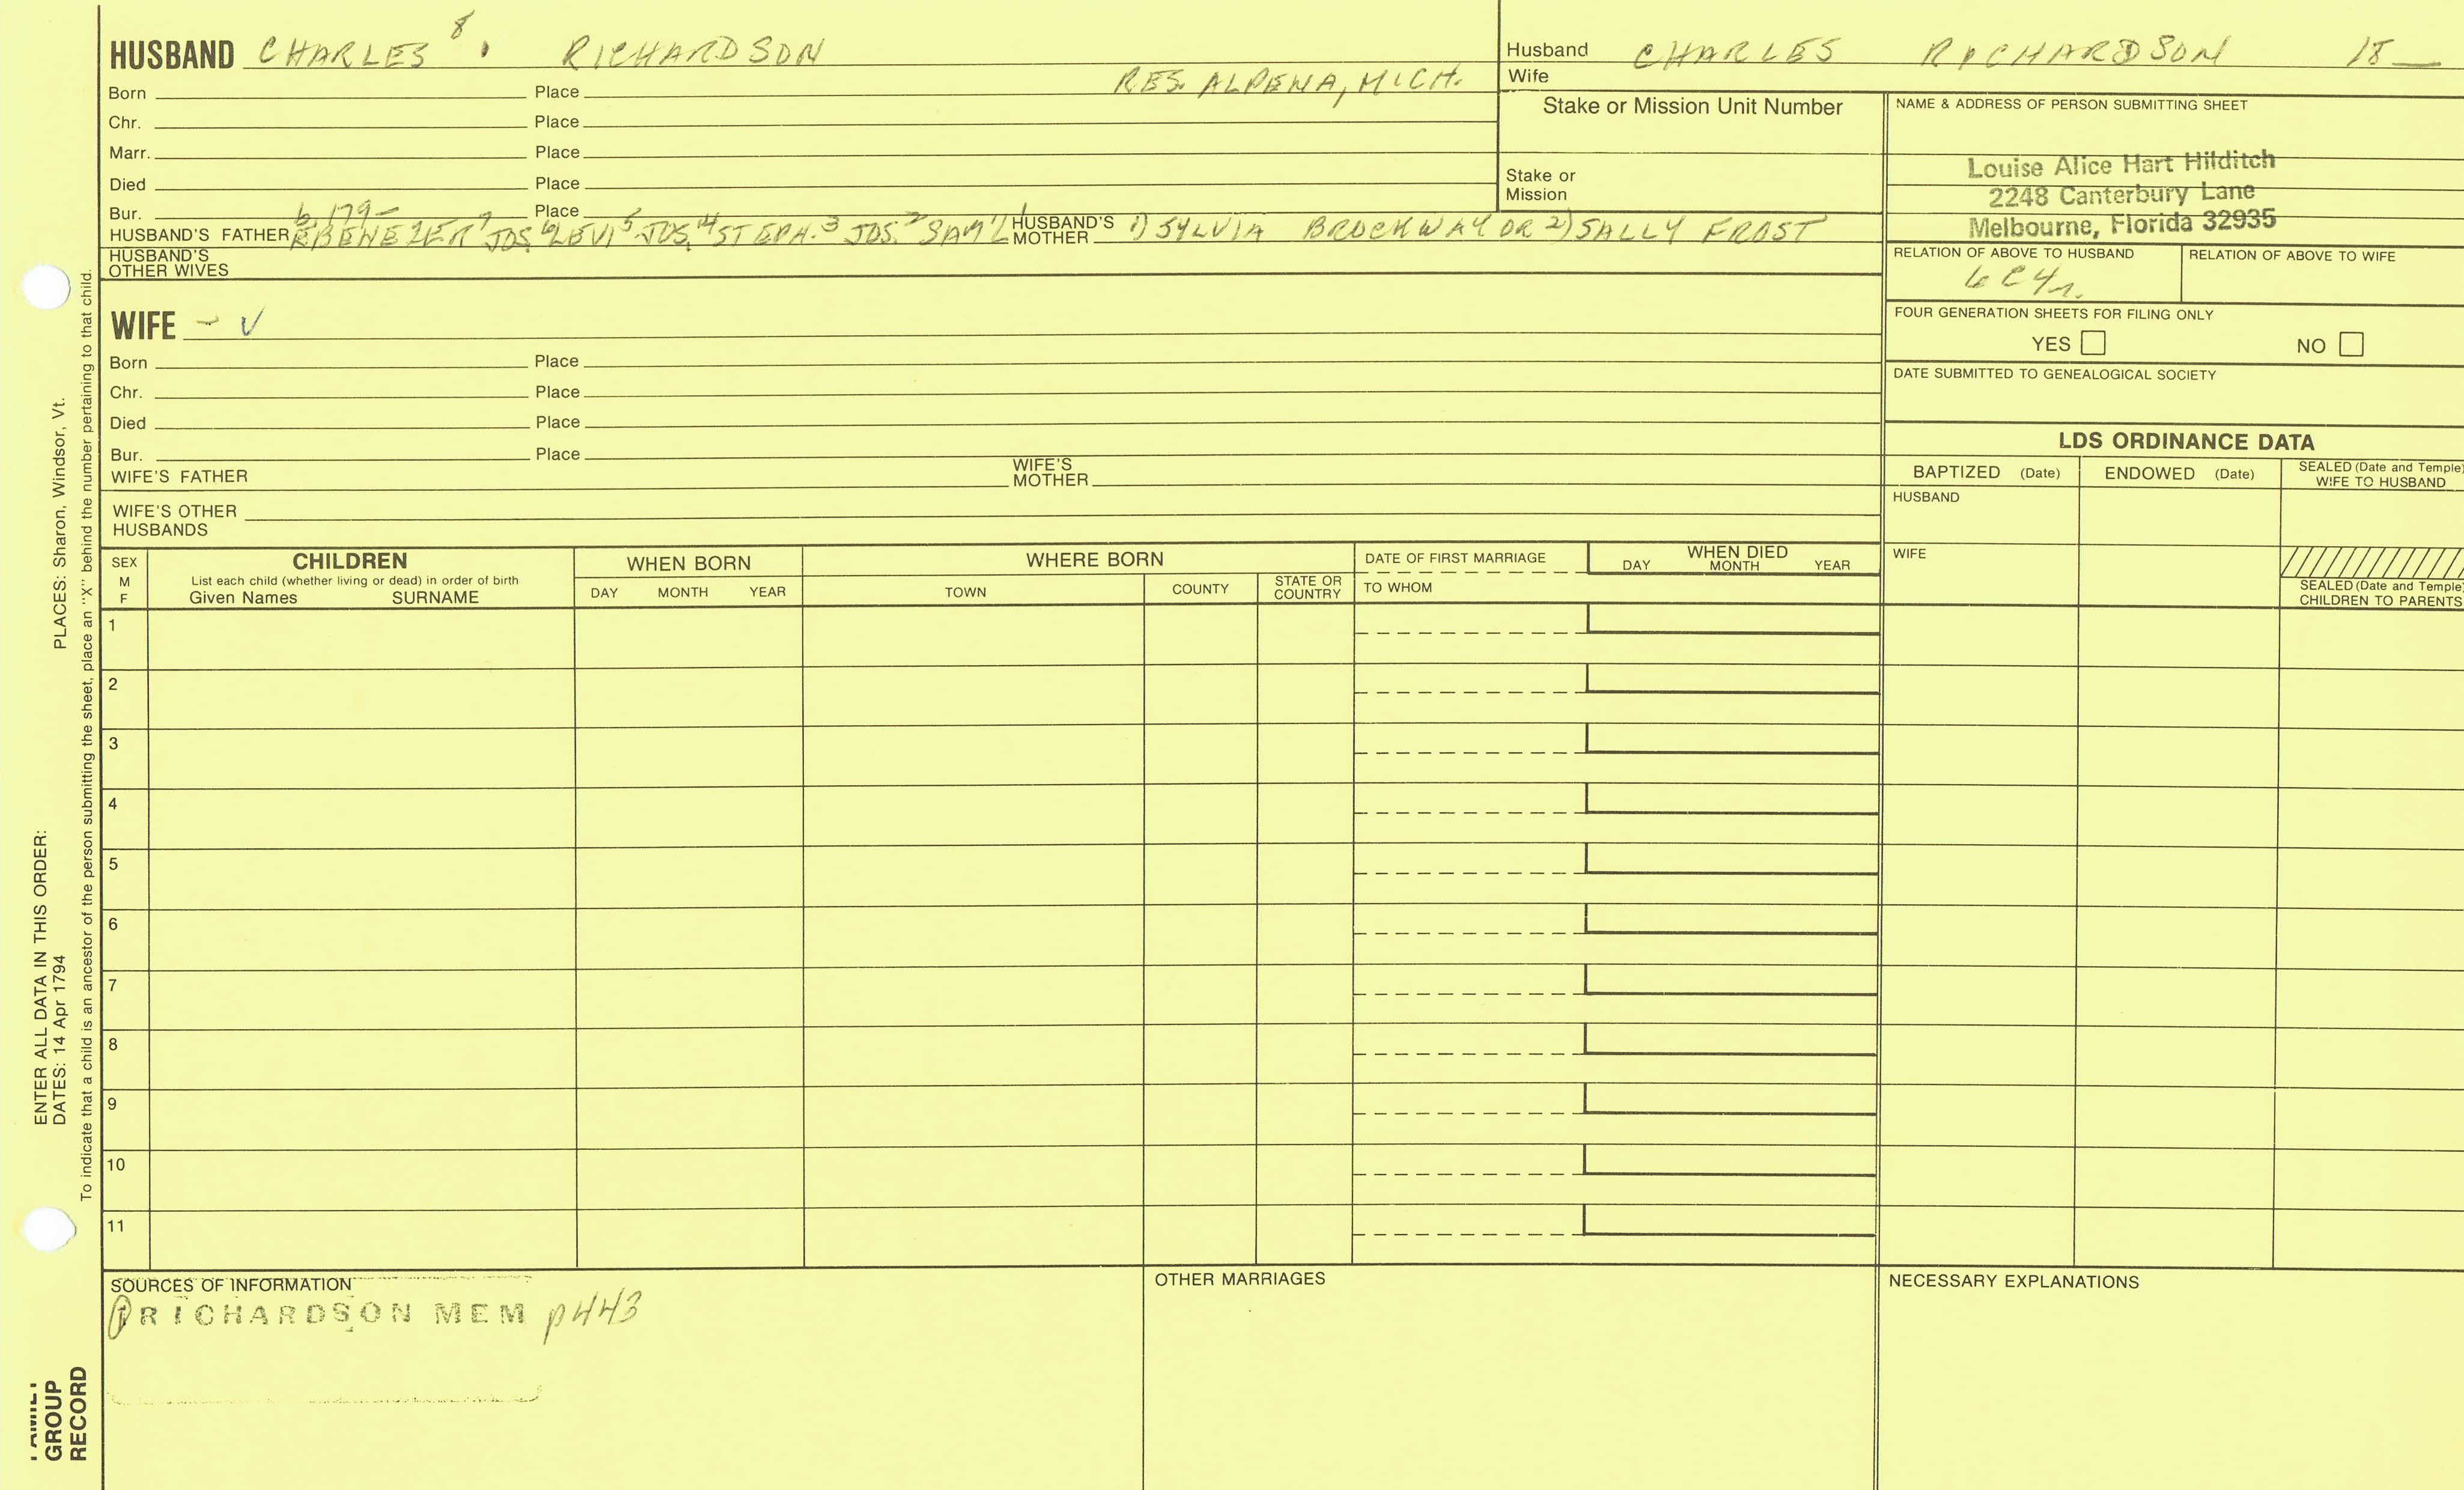 HUSBAND CHARLES 8. RICHARDSON
RES. ALPENA, MICH.
Born Place
Chr. Place
Marr. Place
Died Place
Bur. Place
b. 179-
HUSBAND'S FATHER EBENEZER 7 JOS. 6 LEVI 5 JOS. 4 STEPH. 3 JOS. 2 SAM'L 1 HUSBAND'S MOTHER 1) SYLVIA BROCKWAY OR 2) SALLY FROST
HUSBAND'S OTHER WIVES
WIFE - V
Born Place
Chr. Place
Died Place
Bur. Place
WIFE'S FATHER WIFE'S MOTHER
WIFE'S OTHER HUSBANDS
Husband CHARLES RICHARDSON 18__
Wife
Stake or Mission Unit Number
Stake or Mission
NAME & ADDRESS OF PERSON SUBMITTING SHEET
Louise Alice Hart Hilditch
2248 Canterbury Lane
Melbourne, Florida 32935
RELATION OF ABOVE TO HUSBAND RELATION OF ABOVE TO WIFE
6C4r.
FOUR GENERATION SHEETS FOR FILING ONLY
YES NO
DATE SUBMITTED TO GENEALOGICAL SOCIETY
LDS ORDINANCE DATA
BAPTIZED (Date) ENDOWED (Date) SEALED (Date and Temple) WIFE TO HUSBAND
HUSBAND
WIFE
SEALED (Date and Temple) CHILDREN TO PARENTS
SEX M F
CHILDREN
List each child (whether living or dead) in order of birth
Given Names SURNAME
WHEN BORN
DAY MONTH YEAR
WHERE BORN
TOWN COUNTY STATE OR COUNTRY
DATE OF FIRST MARRIAGE
TO WHOM
WHEN DIED
DAY MONTH YEAR
1
2
3
4
5
6
7
8
9
10
11
SOURCES OF INFORMATION
1 RICHARDSON MEM p443
OTHER MARRIAGES
NECESSARY EXPLANATIONS
ENTER ALL DATA IN THIS ORDER:
DATES: 14 Apr 1794 PLACES: Sharon, Windsor, Vt.
To indicate that a child is an ancestor of the person submitting the sheet, place an "X" behind the number pertaining to that child.
FAMILY
GROUP
RECORD